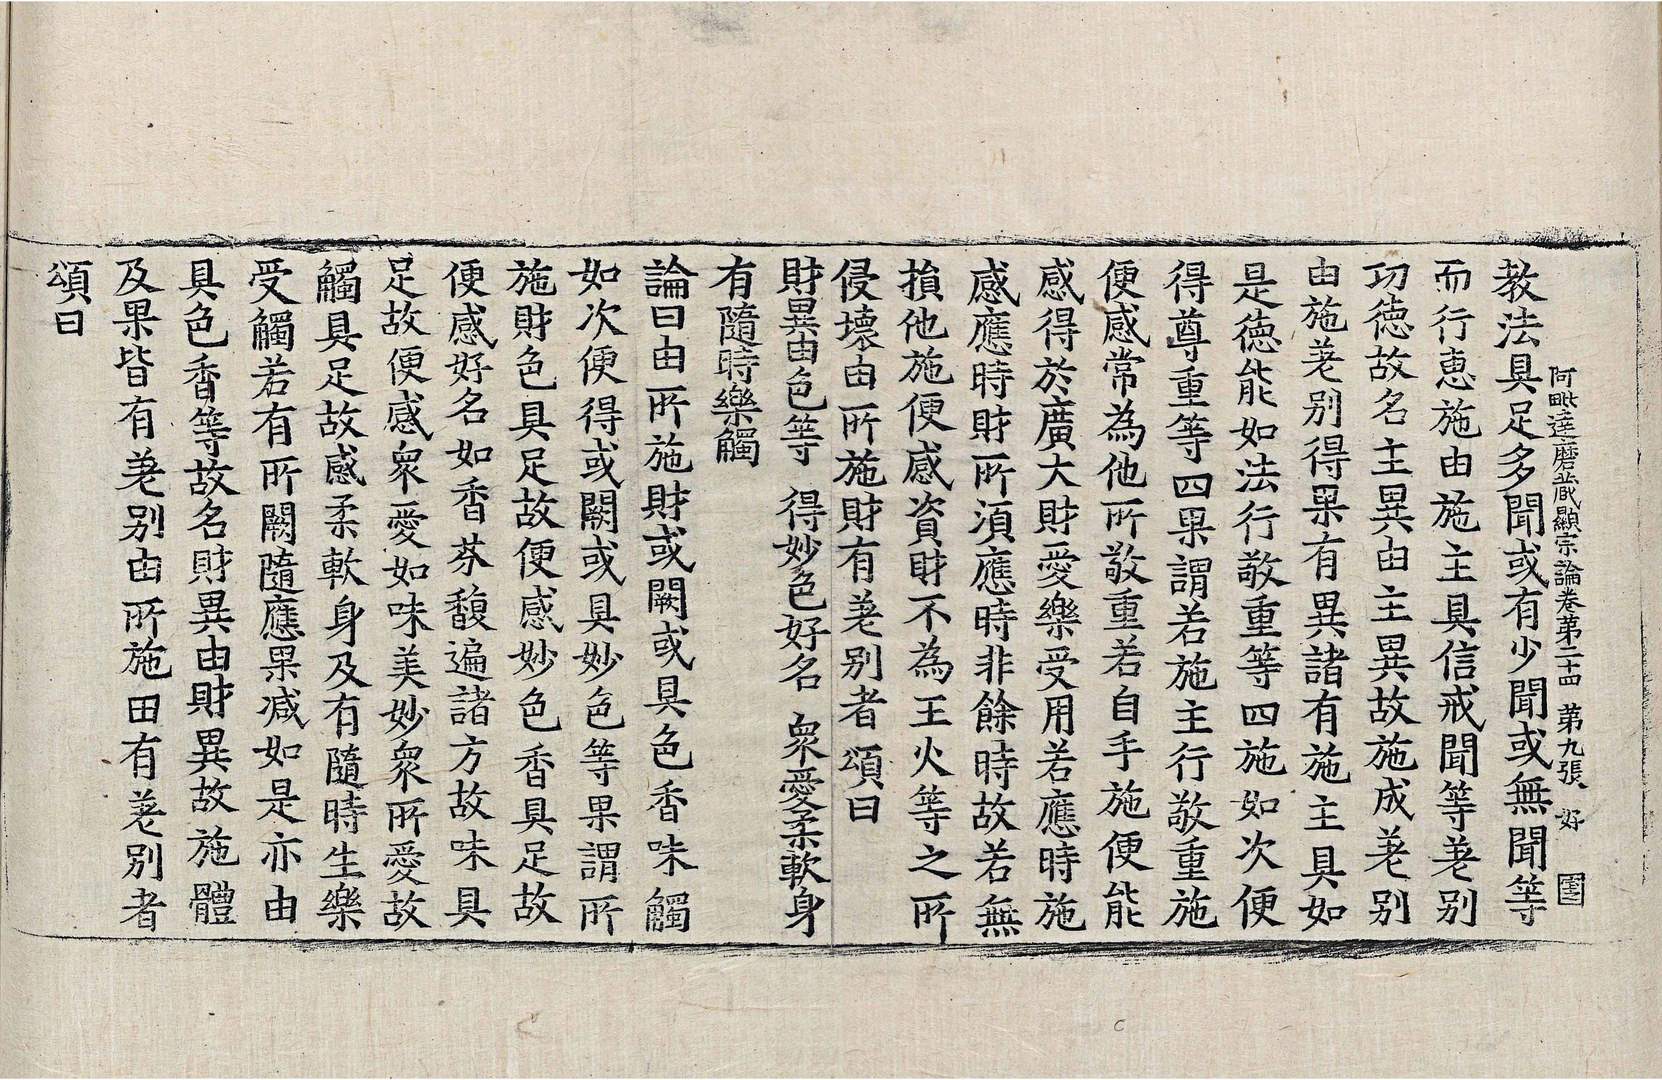 阿毗達磨藏顯宗論卷第二十四 第九張 好
教法具足多聞或有少聞或無聞等
而行惠施由施主具信戒聞等差别
功德故名主異由主異故施成差别
由施差别得果有異諸有施主具如
是德能如法行敬重等四施如次便
得尊重等四果謂若施主行敬重施
便感常為他所敬重若自手施便能
感得於廣大財愛樂受用若應時施
感應時財所湏應時非餘時故若無
損他施便感資財不為王火等之所
侵壞由所施財有差别者頌曰
財異由色等 得妙色好名 衆愛柔軟身
有隨時樂觸
論曰由所施財或闕或具色香味觸
如次便得或闕或具妙色等果謂所
施財色具足故便感妙色香具足故
便感好名如香芬馥遍諸方故味具
足故便感衆愛如味美妙衆所愛故
觸具足故感柔軟身及有隨時生樂
受觸若有所闕隨應果减如是亦由
具色香等故名財異由財異故施體
及果皆有差别由所施田有差别者
頌曰